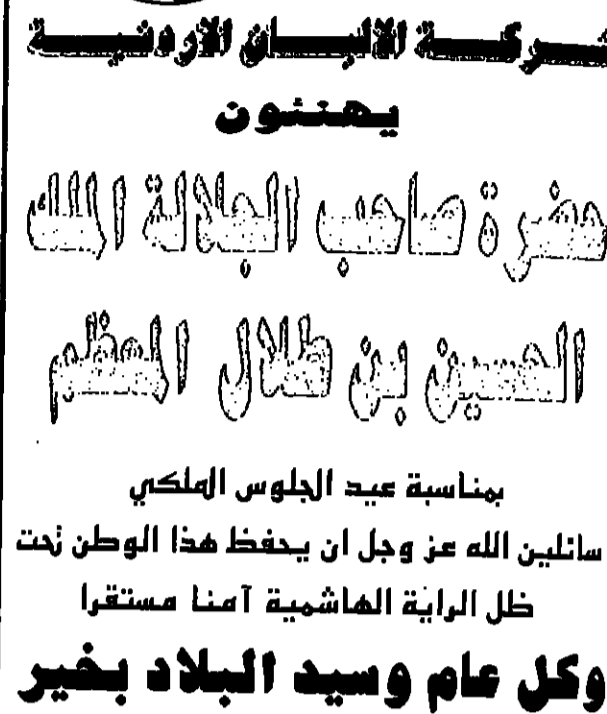 شركة الألبان الأردنية
يهنئون
حضرة صاحب الجلالة الملك
الحسين بن طلال المعظم
بمناسبة عيد الجلوس الملكي
سائلين الله عز وجل ان يحفظ هذا الوطن تحت
ظل الراية الهاشمية آمنا مستقرا
وكل عام وسيد البلاد بخير